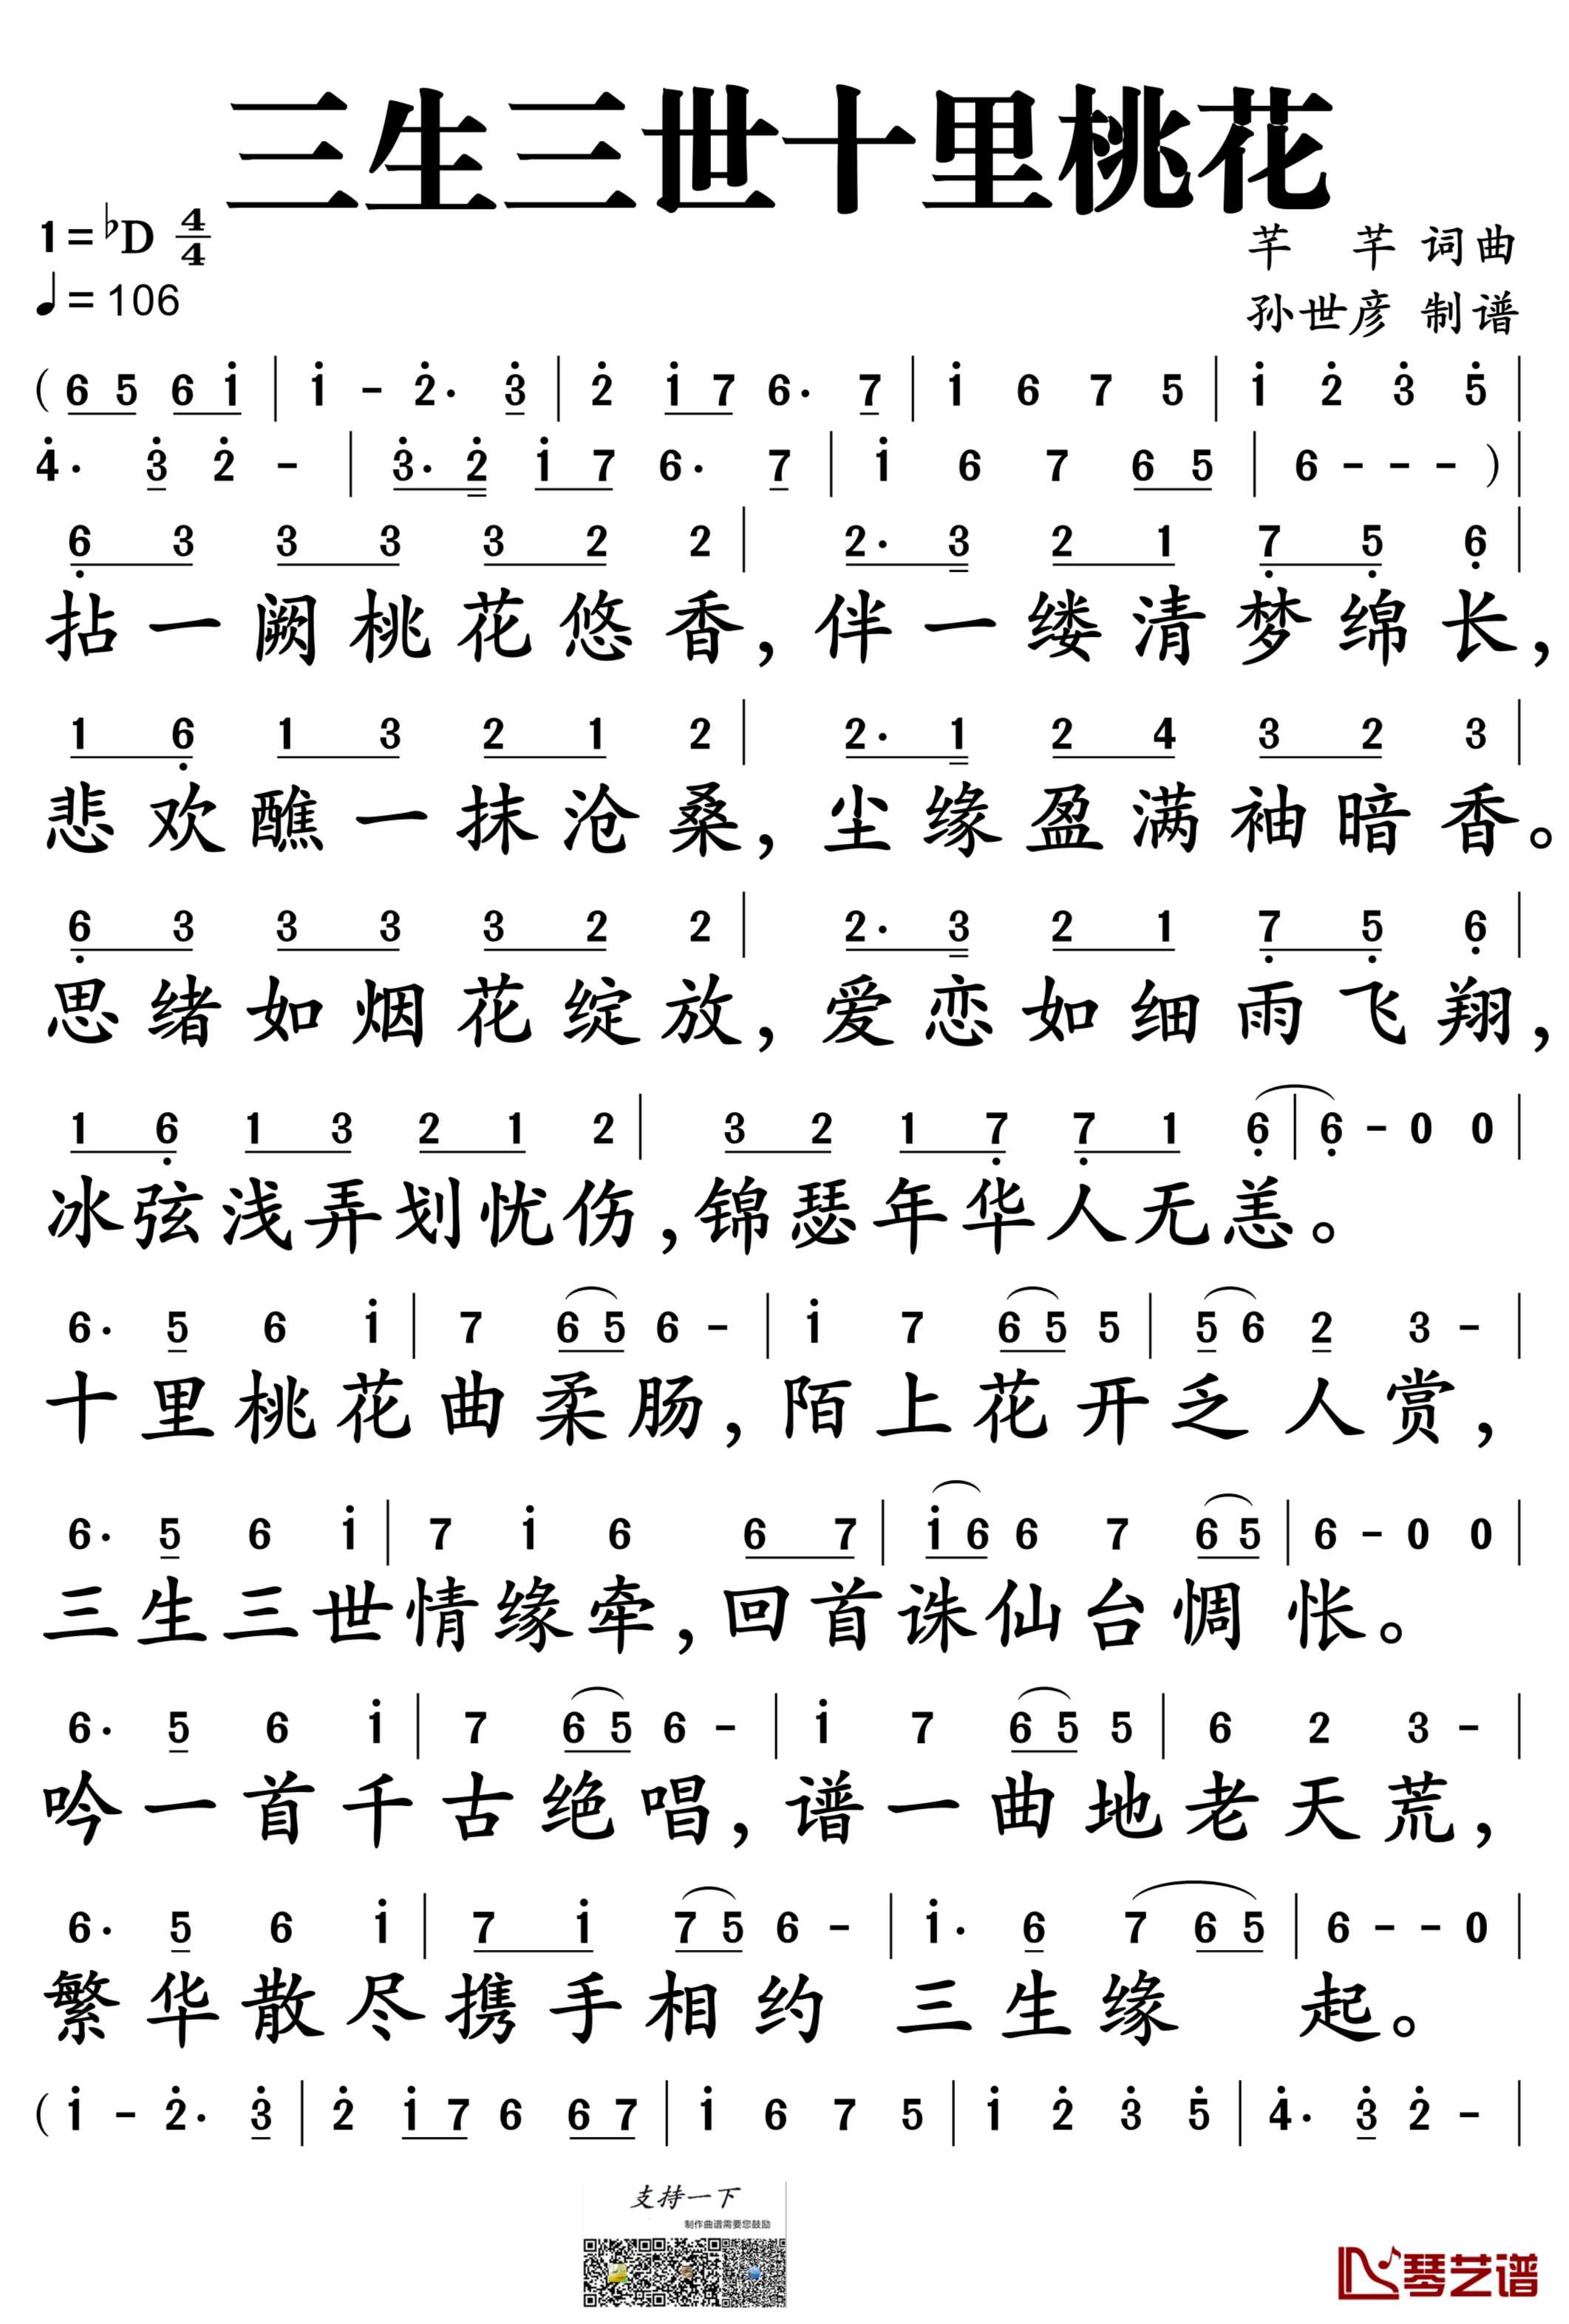 三生三世十里桃花
1=♭D 4/4
芊 芊 词曲
♩=106
孙世彦 制谱
(6 5 6 i̇ | i̇ - 2̇· 3̇ | 2̇ i̇ 7 6· 7 | i̇ 6 7 5 | i̇ 2̇ 3̇ 5̇ |
4̇· 3̇ 2̇ - | 3̇· 2̇ i̇ 7 6· 7 | i̇ 6 7 6 5 | 6 - - - ) |
6̣ 3 3 3 3 2 2 | 2· 3 2 1 7̣ 5̣ 6̣ |
拈一阙桃花悠香，伴一缕清梦绵长，
1 6̣ 1 3 2 1 2 | 2· 1 2 4 3 2 3 |
悲欢醮一抹沧桑，尘缘盈满袖暗香。
6̣ 3 3 3 3 2 2 | 2· 3 2 1 7̣ 5̣ 6̣ |
思绪如烟花绽放，爱恋如细雨飞翔，
1 6̣ 1 3 2 1 2 | 3 2 1 7̣ 7̣ 1 6̣ | 6̣ - 0 0 |
冰弦浅弄划忧伤，锦瑟年华人无恙。
6· 5 6 i̇ | 7 6 5 6 - | i̇ 7 6 5 5 | 5 6 2 3 - |
十里桃花曲柔肠，陌上花开乏人赏，
6· 5 6 i̇ | 7 i̇ 6 6 7 | i̇ 6 6 7 6 5 | 6 - 0 0 |
三生三世情缘牵，回首诛仙台惆怅。
6· 5 6 i̇ | 7 6 5 6 - | i̇ 7 6 5 5 | 6 2 3 - |
吟一首千古绝唱，谱一曲地老天荒，
6· 5 6 i̇ | 7 i̇ 7 5 6 - | i̇· 6 7 6 5 | 6 - - 0 |
繁华散尽携手相约 三生缘 起。
(i̇ - 2̇· 3̇ | 2̇ i̇ 7 6 6 7 | i̇ 6 7 5 | i̇ 2̇ 3̇ 5̇ | 4̇· 3̇ 2̇ - |
支持一下
制作曲谱需要您鼓励
琴艺谱